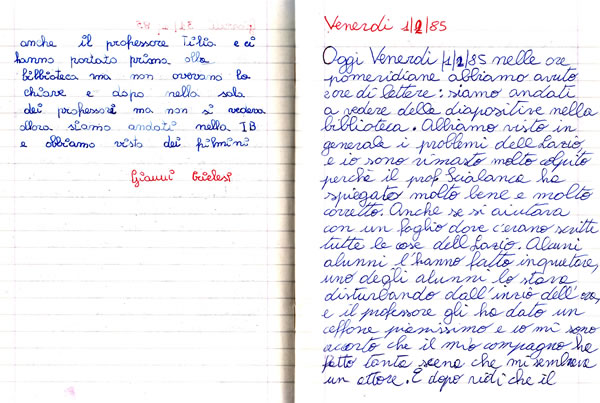 anche il professore Tilia e ci
hanno portato prima alla
bilbioteca ma non avevano la
chiave e dopo nella sala
dei professori ma non si vedeva
allora siamo andati nella IB
e abbiamo visto dei filmini
Gianni
Venerdi 1/2/85
Oggi Venerdi 1/2/85 nelle ore
pomeridiane abbiamo avuto
2 ore di lettere: siamo andati
a vedere delle diapositive nella
biblioteca. Abbiamo visto in
generale i problemi dell Lazio,
e io sono rimasto molto colpito
perchè il prof. Scialanca ha
spiegato molto bene e molto
corretto. Anche se si aiutava
con un foglio dove c'erano scritte
tutte le cose dell Lazio. Alcuni
alunni l'hanno fatto inquietare,
uno degli alunni lo stava
disturbando dall'inizio dell'ora,
e il professore gli ha dato un
ceffone pianissimo e io mi sono
accorto che il mio compagno ha
fatto tanta scena che mi sembrava
un attore. E dopo vidi che il